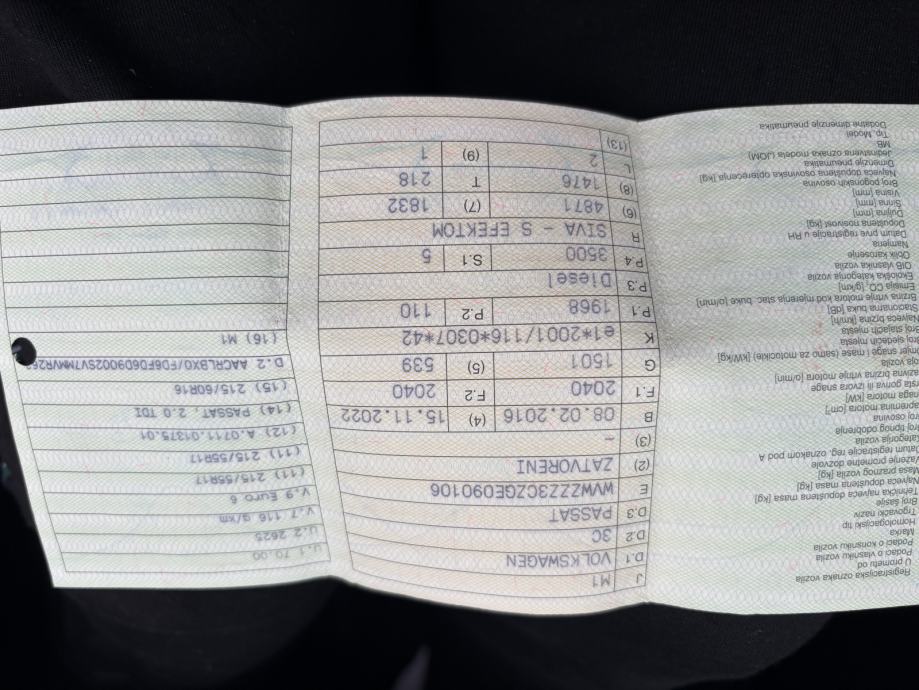 Registracijska oznaka vozila
U prometu od
Podaci o vlasniku vozila
Podaci o korisniku vozila
Marka
Homologacijski tip
Trgovački naziv
Broj šasije
Tehnička najveća dopuštena masa [kg]
Najveća dopuštena masa [kg]
Masa praznog vozila [kg]
Važenje prometne dozvole
Datum registracije reg. oznakom pod A
ategorija vozila
roj tipnog odobrenja
roj osovina
apremina motora [cm³]
naga motora [kW]
sta goriva ili izvora snage
azivna brzina vrtnje motora [o/min]
oja vozila
mjer snage i mase (samo za motocikle) [kW/kg]
roj sjedećih mjesta
roj stajaćih mjesta
Najveća brzina [km/h]
Stacionarna buka [dB]
Brzina vrtnje motora kod mjerenja stac. buke [o/min]
Emisija CO₂ [g/km]
Ekološka kategorija vozila
OIB vlasnika vozila
Oblik karoserije
Namjena
Datum prve registracije u RH
Dopuštena nosivost [kg]
Duljina [mm]
Širina [mm]
Visina [mm]
Broj pogonskih osovina
Najveća dopuštena osovinska opterećenja [kg]
Dimenzije pneumatika
Jedinstvena oznaka modela (JOM)
MB
Tip, Model
Dodatne dimenzije pneumatika
J M1
D.1 VOLKSWAGEN
D.2 3C
D.3 PASSAT
E WVWZZZ3CZGE090106
(2) ZATVORENI
(3) –
B 08.02.2016 (4) 15.11.2022
F.1 2040 F.2 2040
G 1501 (5) 539
K e1*2001/116*0307*42
P.1 1968 P.2 110
P.3 Diesel
P.4 3500 S.1 5
R SIVA - S EFEKTOM
(6) 4871 (7) 1832
(8) 1476 T 218
L 2 (9) 1
(13)
U.1 70.00
U.2 2625
V.7 116 g/km
V.9 Euro 6
(11) 215/55R17
(11) 215/55R17
(12) A.0711.01375.01
(14) PASSAT, 2.0 TDI
(15) 215/60R16
D.2
(16) M1